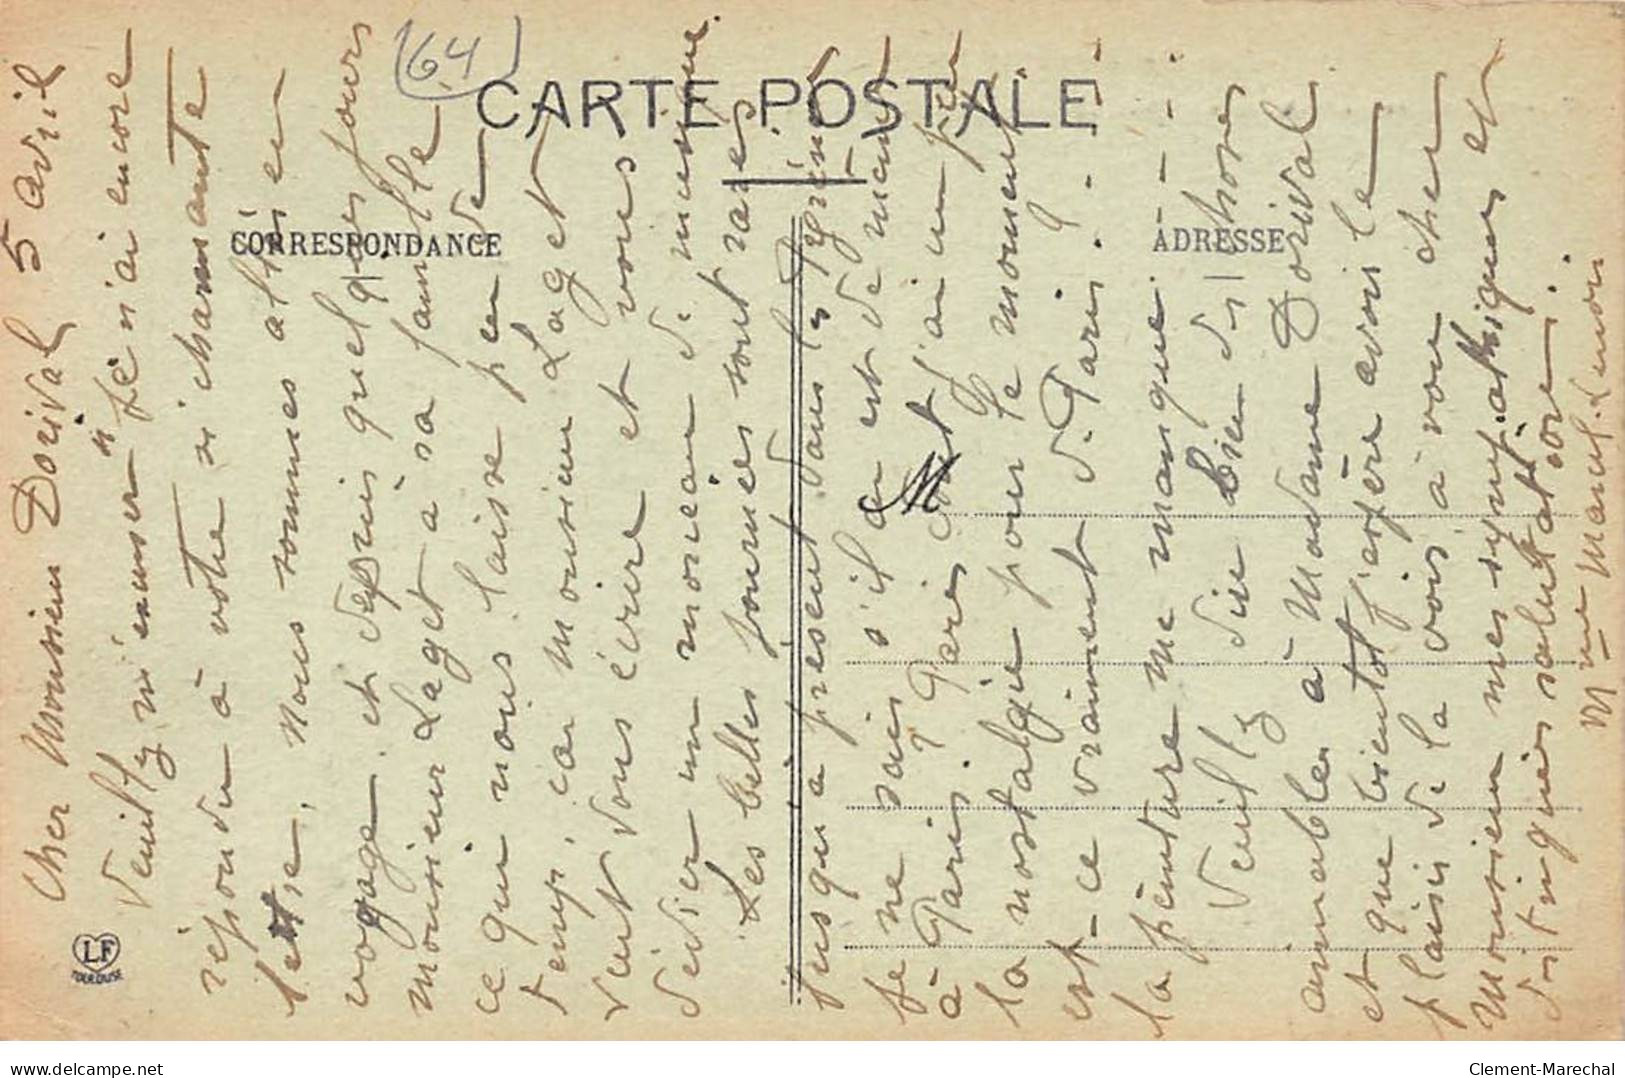 (64)
CARTE POSTALE
CORRESPONDANCE
ADRESSE
M
LF
TOULOUSE
5 avril
Cher Monsieur Dorival
Veuillez m'excuser si je n'ai encore
répondu à votre si charmante
lettre, nous sommes allés en
voyage et depuis quelques jours
Monsieur Laget à sa famille
ce qui nous laisse peu de
temps, car Monsieur Laget
veut vous écrire et vous
dédier un morceau de musique
Les belles journées sont rares
jusqu'à présent dans les Pyrénées
je ne sais s'il en est de même
à Paris. Paris dont j'ai un peu
la nostalgie pour le moment
est-ce vraiment de Paris! ou
la peinture me manque
Veuillez dire bien des choses
aimables à Madame Dorival
et que bientôt j'espère avoir le
plaisir de la voir à vous cher
Monsieur mes sympathiques et
distinguées salutations.
Mme Marcel-Lenoir
delcampe.net
Clement-Marechal